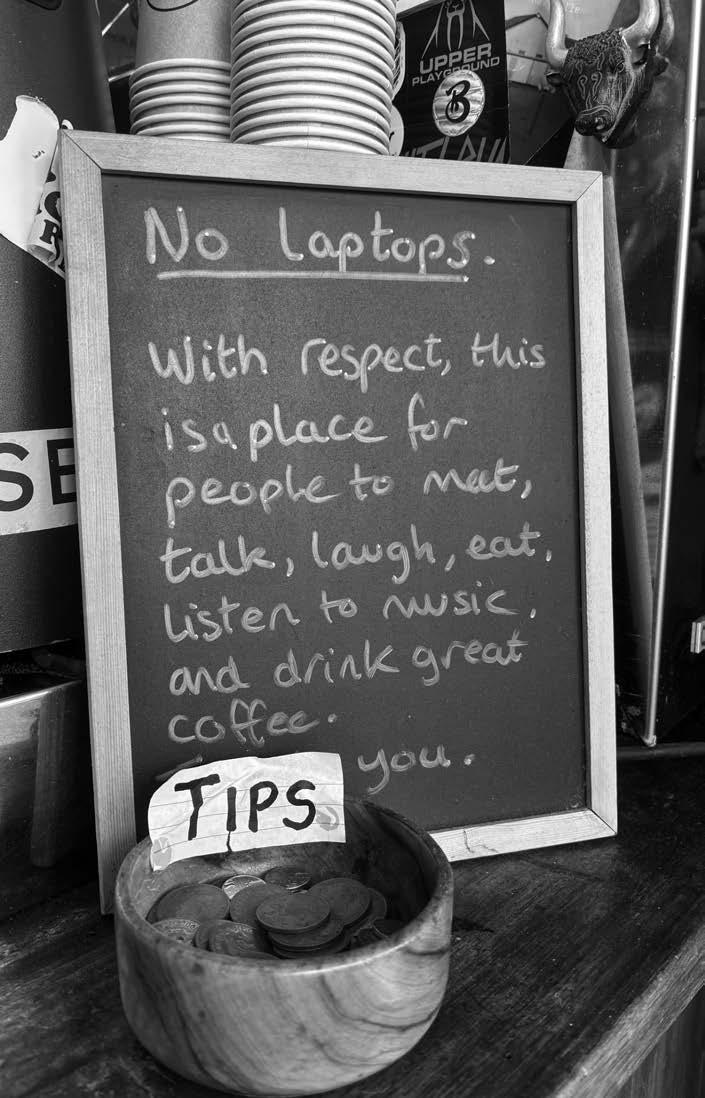 UPPER
PLAYGROUND
B
SE
No Laptops.
With respect, this
is a place for
people to meet,
talk, laugh, eat,
listen to music,
and drink great
coffee.
you.
TIPS